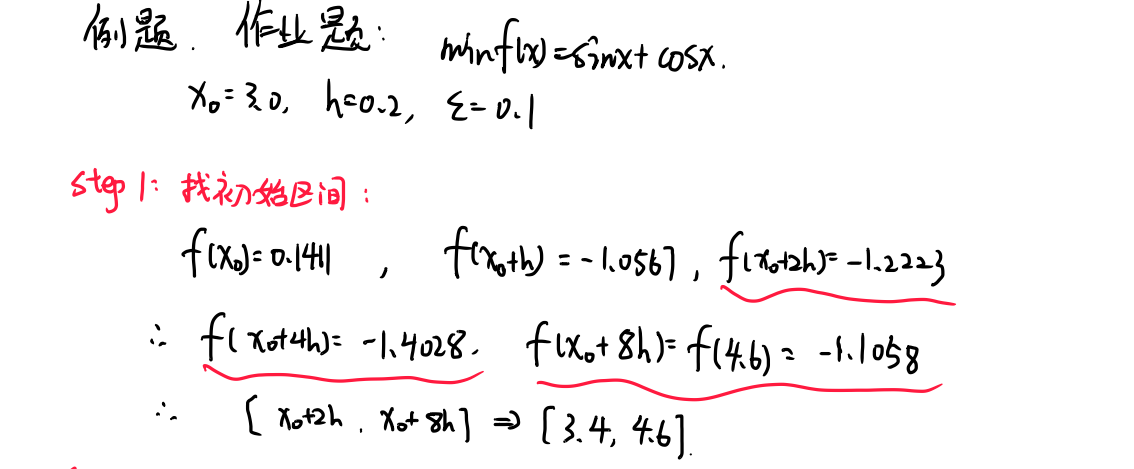 例题. 作业题: min f(x)=sinx+cosx.
x₀=3.0, h=0.2, ε=0.1
step 1: 找初始区间:
f(x₀)=0.1411 , f(x₀+h) = -1.0567, f(x₀+2h)= -1.2223
∴ f(x₀+4h)= -1.4028. f(x₀+8h)= f(4.6) = -1.1058
∴ [x₀+2h, x₀+8h] ⇒ [3.4, 4.6].